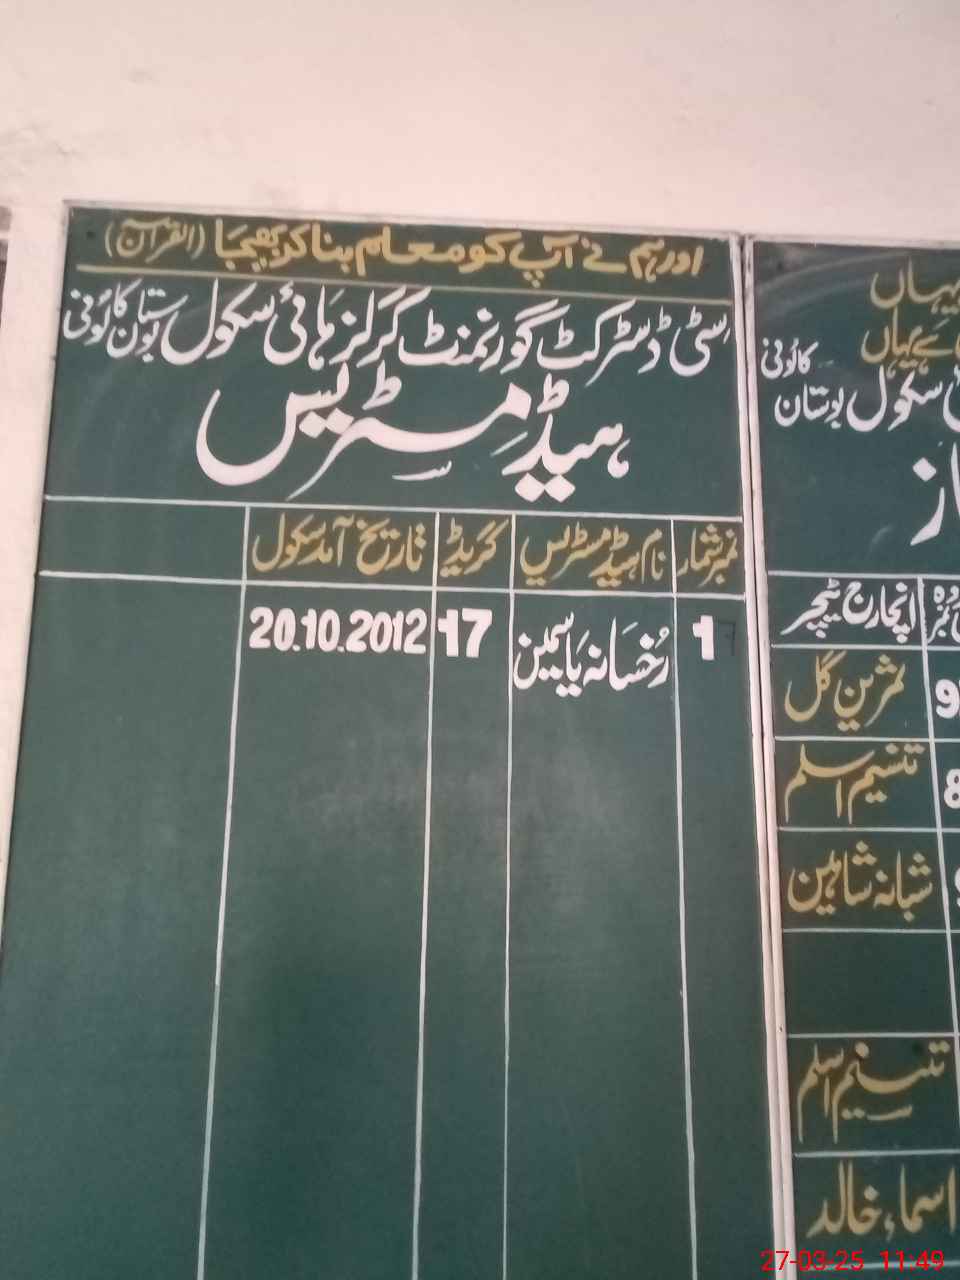 اور ہم نے آپ کو معلم بنا کر بھیجا (القرآن)
سٹی ڈسٹرکٹ گورنمنٹ گرلز ہائی سکول بوستان کالونی
ہیڈ مسٹریس
نمبر شمار نام ہیڈ مسٹریس گریڈ تاریخ آمد سکول
1 رُخسانہ یاسمین 17 20.10.2012
یہاں
ہے یہاں
سکول بوستان کالونی
انچارج ٹیچر
ثمرین گل
تسنیم اسلم
شبانہ شاہین
تسنیم اسلم
اسماء خالد
27-03-25 11:49